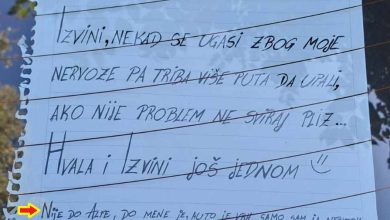 IZVINI, NEKAD SE UGASI ZBOG MOJE
NERVOZE PA TRIBA VIŠE PUTA DA UPALI,
AKO NIJE PROBLEM NE SVIRAJ PLIZ...
HVALA I IZVINI JOŠ JEDNOM
NIJE DO AUTE, DO MENE JE, AUTO JE SAMO SAM JA